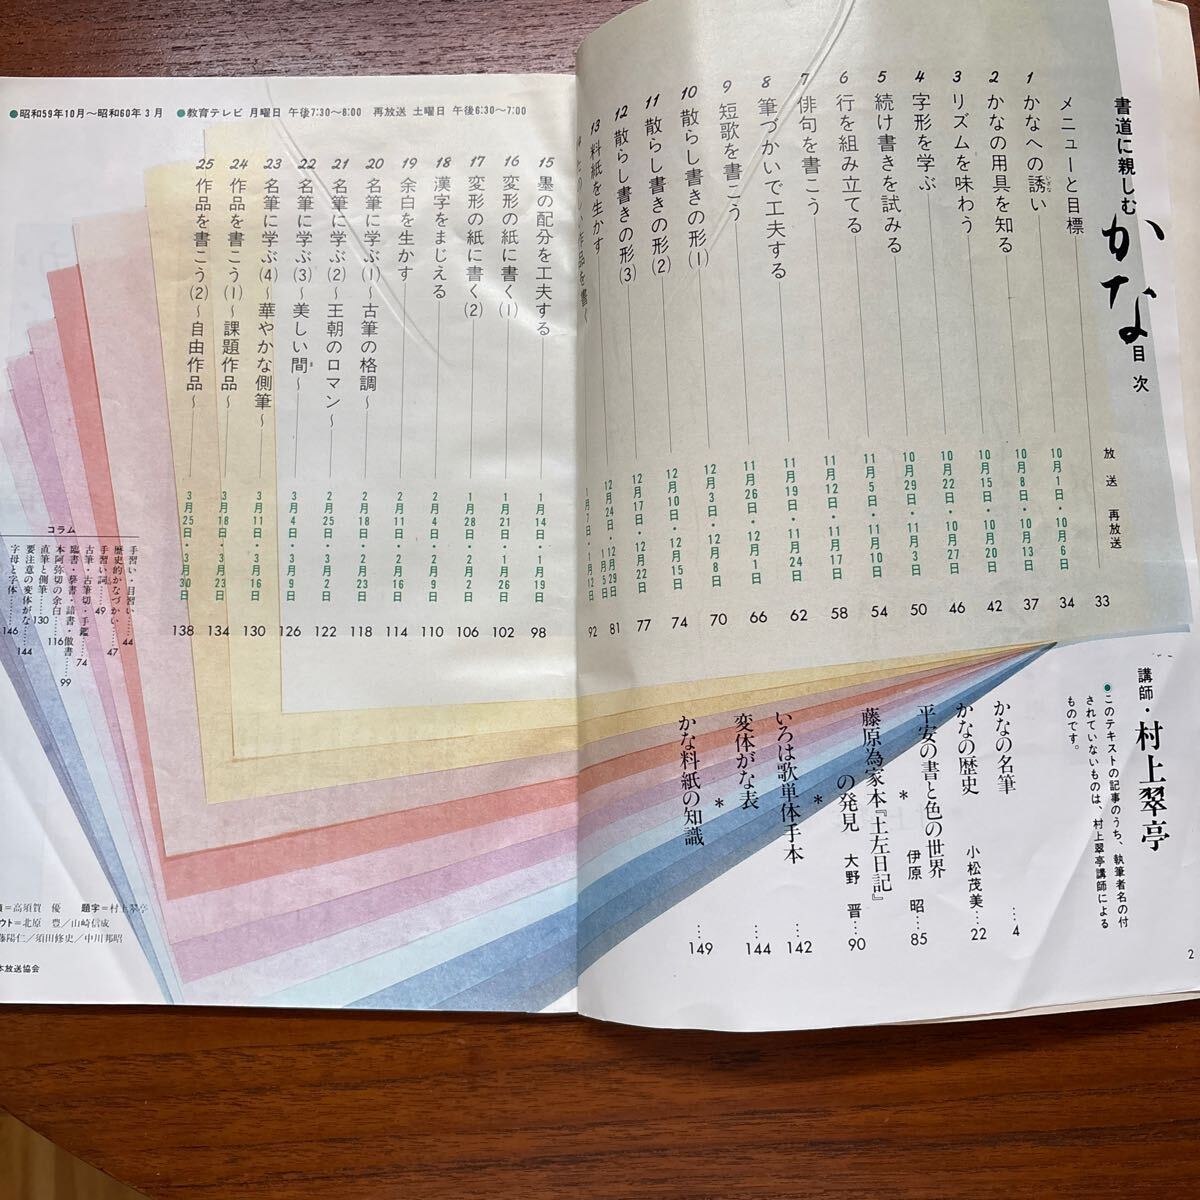 書道に親しむ
かな
目次
放送 再放送
メニューと目標 33
1 かなへの誘い 10月1日・10月6日 34
2 かなの用具を知る 10月8日・10月13日 37
3 リズムを味わう 10月15日・10月20日 42
4 字形を学ぶ 10月22日・10月27日 46
5 続け書きを試みる 10月29日・11月3日 50
6 行を組み立てる 11月5日・11月10日 54
7 俳句を書こう 11月12日・11月17日 58
8 筆づかいで工夫する 11月19日・11月24日 62
9 短歌を書こう 11月26日・12月1日 66
10 散らし書きの形(1) 12月3日・12月8日 70
11 散らし書きの形(2) 12月10日・12月15日 74
12 散らし書きの形(3) 12月17日・12月22日 77
13 料紙を生かす 12月24日・12月29日 1月5日 81
たのしい作品を書く 1月7日・1月12日 92
講師・村上翠亭
●このテキストの記事のうち、執筆者名の付
されていないものは、村上翠亭講師による
ものです。
かなの名筆 …4
かなの歴史 小松茂美…22
平安の書と色の世界 伊原 昭…85
*
藤原為家本『土左日記』
の発見 大野 晋…90
*
いろは歌単体手本 …142
変体がな表 …144
*
かな料紙の知識 …149
2
●昭和59年10月〜昭和60年3月 ●教育テレビ 月曜日 午後7:30〜8:00 再放送 土曜日 午後6:30〜7:00
15 墨の配分を工夫する 1月14日・1月19日 98
16 変形の紙に書く(1) 1月21日・1月26日 102
17 変形の紙に書く(2) 1月28日・2月2日 106
18 漢字をまじえる 2月4日・2月9日 110
19 余白を生かす 2月11日・2月16日 114
20 名筆に学ぶ(1)〜古筆の格調〜 2月18日・2月23日 118
21 名筆に学ぶ(2)〜王朝のロマン〜 2月25日・3月2日 122
22 名筆に学ぶ(3)〜美しい間〜 3月4日・3月9日 126
23 名筆に学ぶ(4)〜華やかな側筆〜 3月11日・3月16日 130
24 作品を書こう(1)〜課題作品〜 3月18日・3月23日 134
25 作品を書こう(2)〜自由作品〜 3月25日・3月30日 138
コラム
手習い・目習い……44
歴史的かなづかい……47
手習い詞……49
古筆・古筆切・手鑑……74
臨書・摹書・詰書・倣書……99
本阿弥切の余白……116
直筆と側筆……130
要注意の変体がな……144
字母と字体……146
＝高須賀 優 題字＝村上翠亭
ウト＝北原 豊／山崎信成
藤陽仁／須田修史／中川邦昭
本放送協会